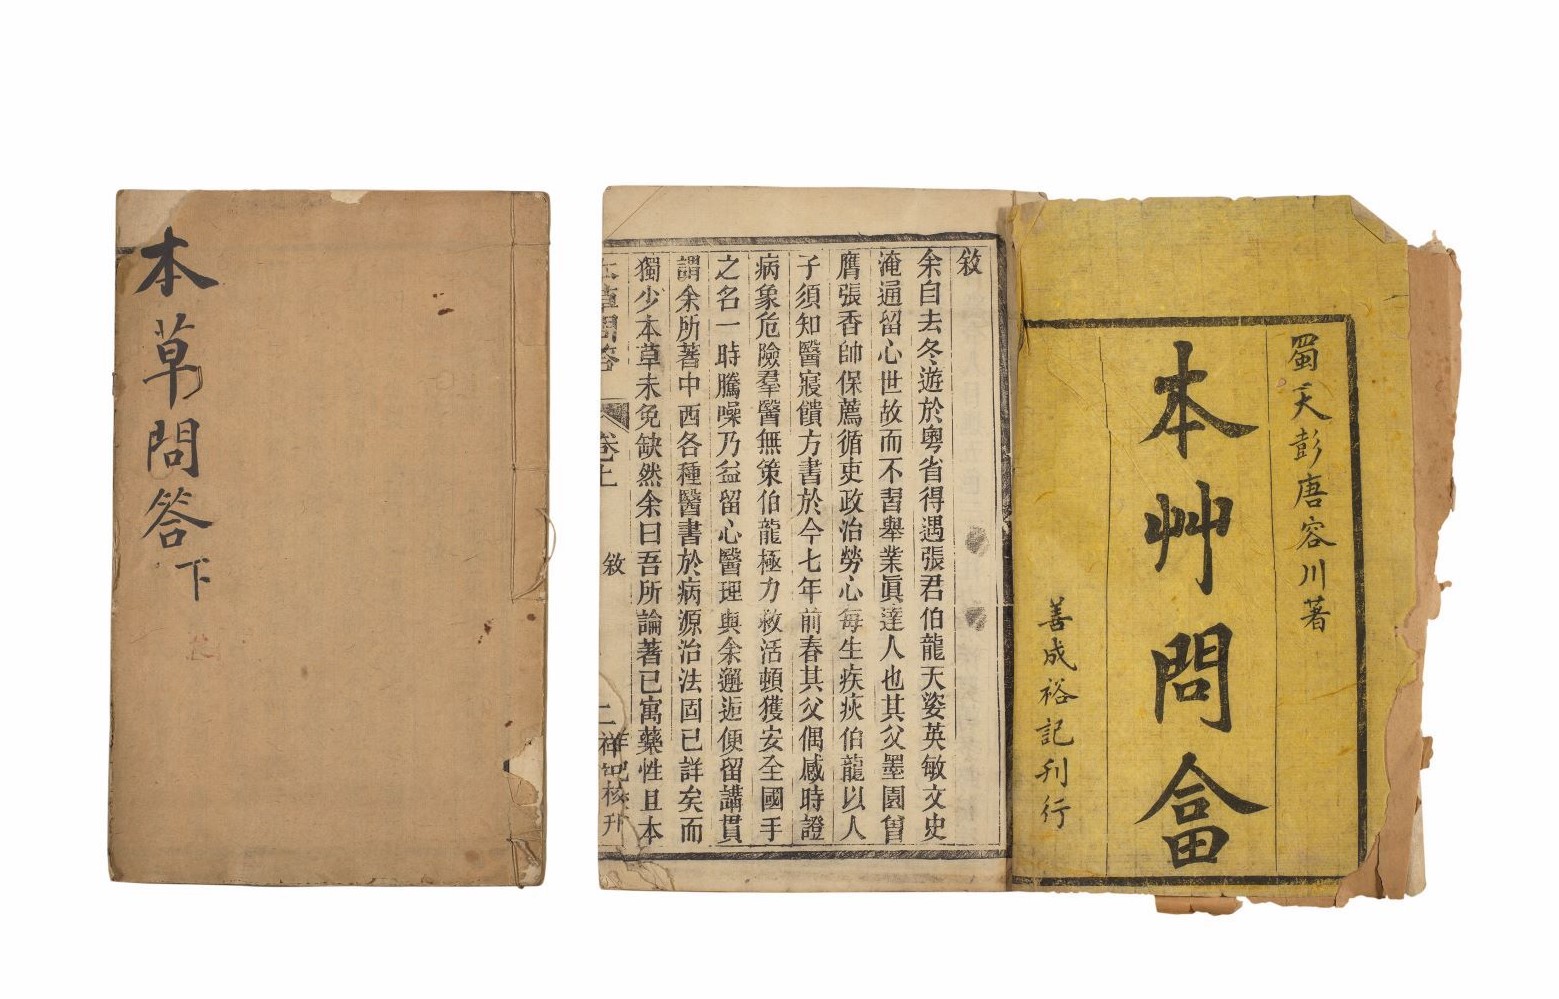 蜀天彭唐容川著
本艸問畣
善成裕記刊行
敘
余自去冬遊於粵省得遇張君伯龍天姿英敏文史
淹通留心世故而不習舉業眞達人也其父墨園曾
膺張香帥保薦循吏政治勞心每生疾疢伯龍以人
子須知醫寢饋方書於今七年前春其父偶感時證
病象危險羣醫無策伯龍極力救活頓獲安全國手
之名一時騰噪乃益留心醫理與余邂逅便留講貫
謂余所著中西各種醫書於病源治法固已詳矣而
獨少本草未免缺然余曰吾所論著已寓藥性且本
本草問答 卷上 敘 二 祥記校刊
本草問答 下